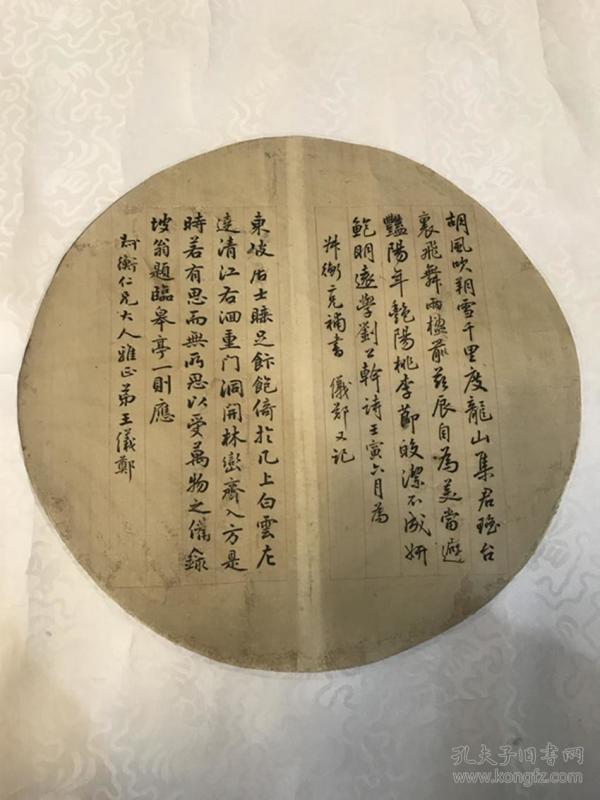 胡風吹朔雪千里度龍山集君瑤台
裏飛舞兩楹前茲辰自為美當避
豔陽年艷陽桃李節皎潔不成妍
鮑明遠學劉公幹詩壬寅六月為
叔衡兄補書 儀鄭又記
東坡居士睡足飯飽倚於几上白雲左
遶清江右洄重门洞開林巒齊入方是
時若有思而無所思以受萬物之備錄
坡翁題臨皋亭一則應
叔衡仁兄大人雅正弟王儀鄭
孔夫子旧书网
www.kongfz.com